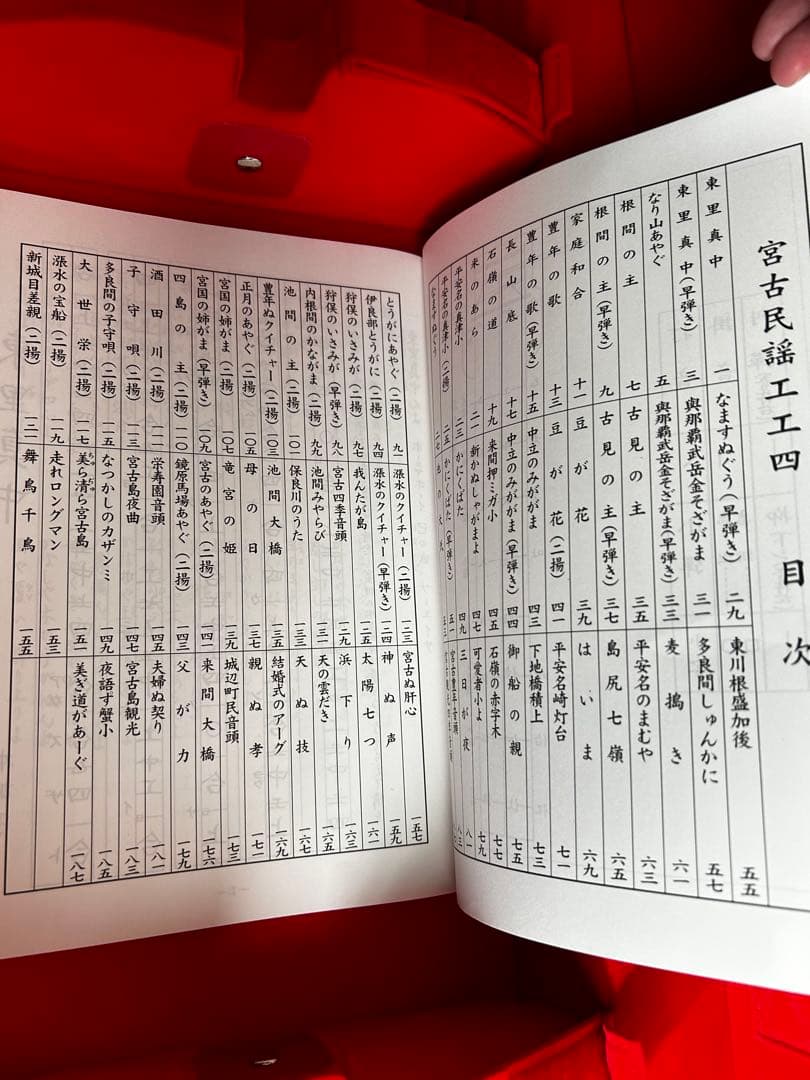 宮古民謡工工四 目次
東里真中 一
東里真中(早弾き) 三
なり山あやぐ 五
根間の主 七
根間の主(早弾き) 九
家庭和合 十一
豊年の歌 十三
豊年の歌(早弾き) 十五
長山底 十七
石嶺の道 十九
米のあら 二一
平安名の真津小 二三
平安名の真津小(二揚) 二五
なますぬぐう(早弾き) 二九
與那覇武岳金そざがま 三一
與那覇武岳金そざがま(早弾き) 三三
古見の主 三五
古見の主(早弾き) 三七
豆が花 三九
豆が花(二揚) 四一
中立のみががま 四三
中立のみががま(早弾き) 四四
来間押ミガ小 四五
新かぬしゃがまよ 四七
かにくばた 四九
かにくばた(早弾き) 五一
東川根盛加後 五五
多良間しゅんかに 五七
麦搗き 六一
平安名のまむや 六三
島尻七嶺 六五
はいま 六九
平安名崎灯台 七一
下地橋積上 七三
御船の親 七五
石嶺の赤字木 七七
可愛者小よ 七九
三日が夜 八一
宮古豊年音頭 八三
とうがにあやぐ(二揚) 九一
伊良部とうがに(二揚) 九四
狩俣のいさみが(二揚) 九七
狩俣のいさみが(早弾き) 九八
内根間のかながま(二揚) 九九
池間の主(二揚) 一〇一
豊年ぬクイチャー(二揚) 一〇三
正月のあやぐ(二揚) 一〇五
宮国の姉がま(二揚) 一〇七
宮国の姉がま(早弾き) 一〇九
四島の主(二揚) 一一〇
酒田川(二揚) 一一一
子守唄(二揚) 一一三
多良間の子守唄(二揚) 一一五
大世栄(二揚) 一一七
漲水の宝船(二揚) 一一九
新城目差親(二揚) 一二一
漲水のクイチャー(二揚) 一二三
漲水のクイチャー(早弾き) 一二四
我んたが島 一二七
宮古四季音頭 一二九
池間みやらび 一三一
保良川のうた 一三三
池間大橋 一三五
母の日 一三七
竜宮の姫 一三九
宮古のあやぐ(二揚) 一四一
鏡原馬場あやぐ(二揚) 一四三
栄寿園音頭 一四五
宮古島夜曲 一四七
なつかしのカザンミ 一四九
美ら清ら宮古島 一五一
ちゅ ぢゅ
走れロングマン 一五三
舞鳥千鳥 一五五
宮古ぬ肝心 一五七
神ぬ声 一五九
太陽七つ 一六一
浜下り 一六三
天の雲だき 一六五
天ぬ技 一六七
結婚式のアーグ 一六九
親ンぬ孝 一七一
城辺町民音頭 一七三
来間大橋 一七六
父が力 一七九
夫婦ぬ契り 一八一
宮古島観光 一八三
夜語ず蟹小 一八五
美ぎ道があーぐ 一八七